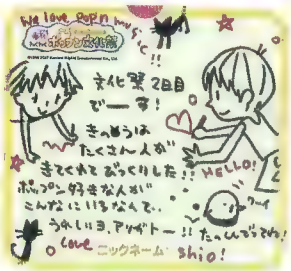 We love pop'n music!!
ポップン文化祭
文化祭 2日目
でーす!
きのうは
たくさん人が
きてくれてびっくりした!!
HELLO!
ポップン好きな人が
こんなにいるなんて..
ワーイ
うれしいヨ、アリガトー!!
たのしんでってね!
Love
ニックネーム
shio!